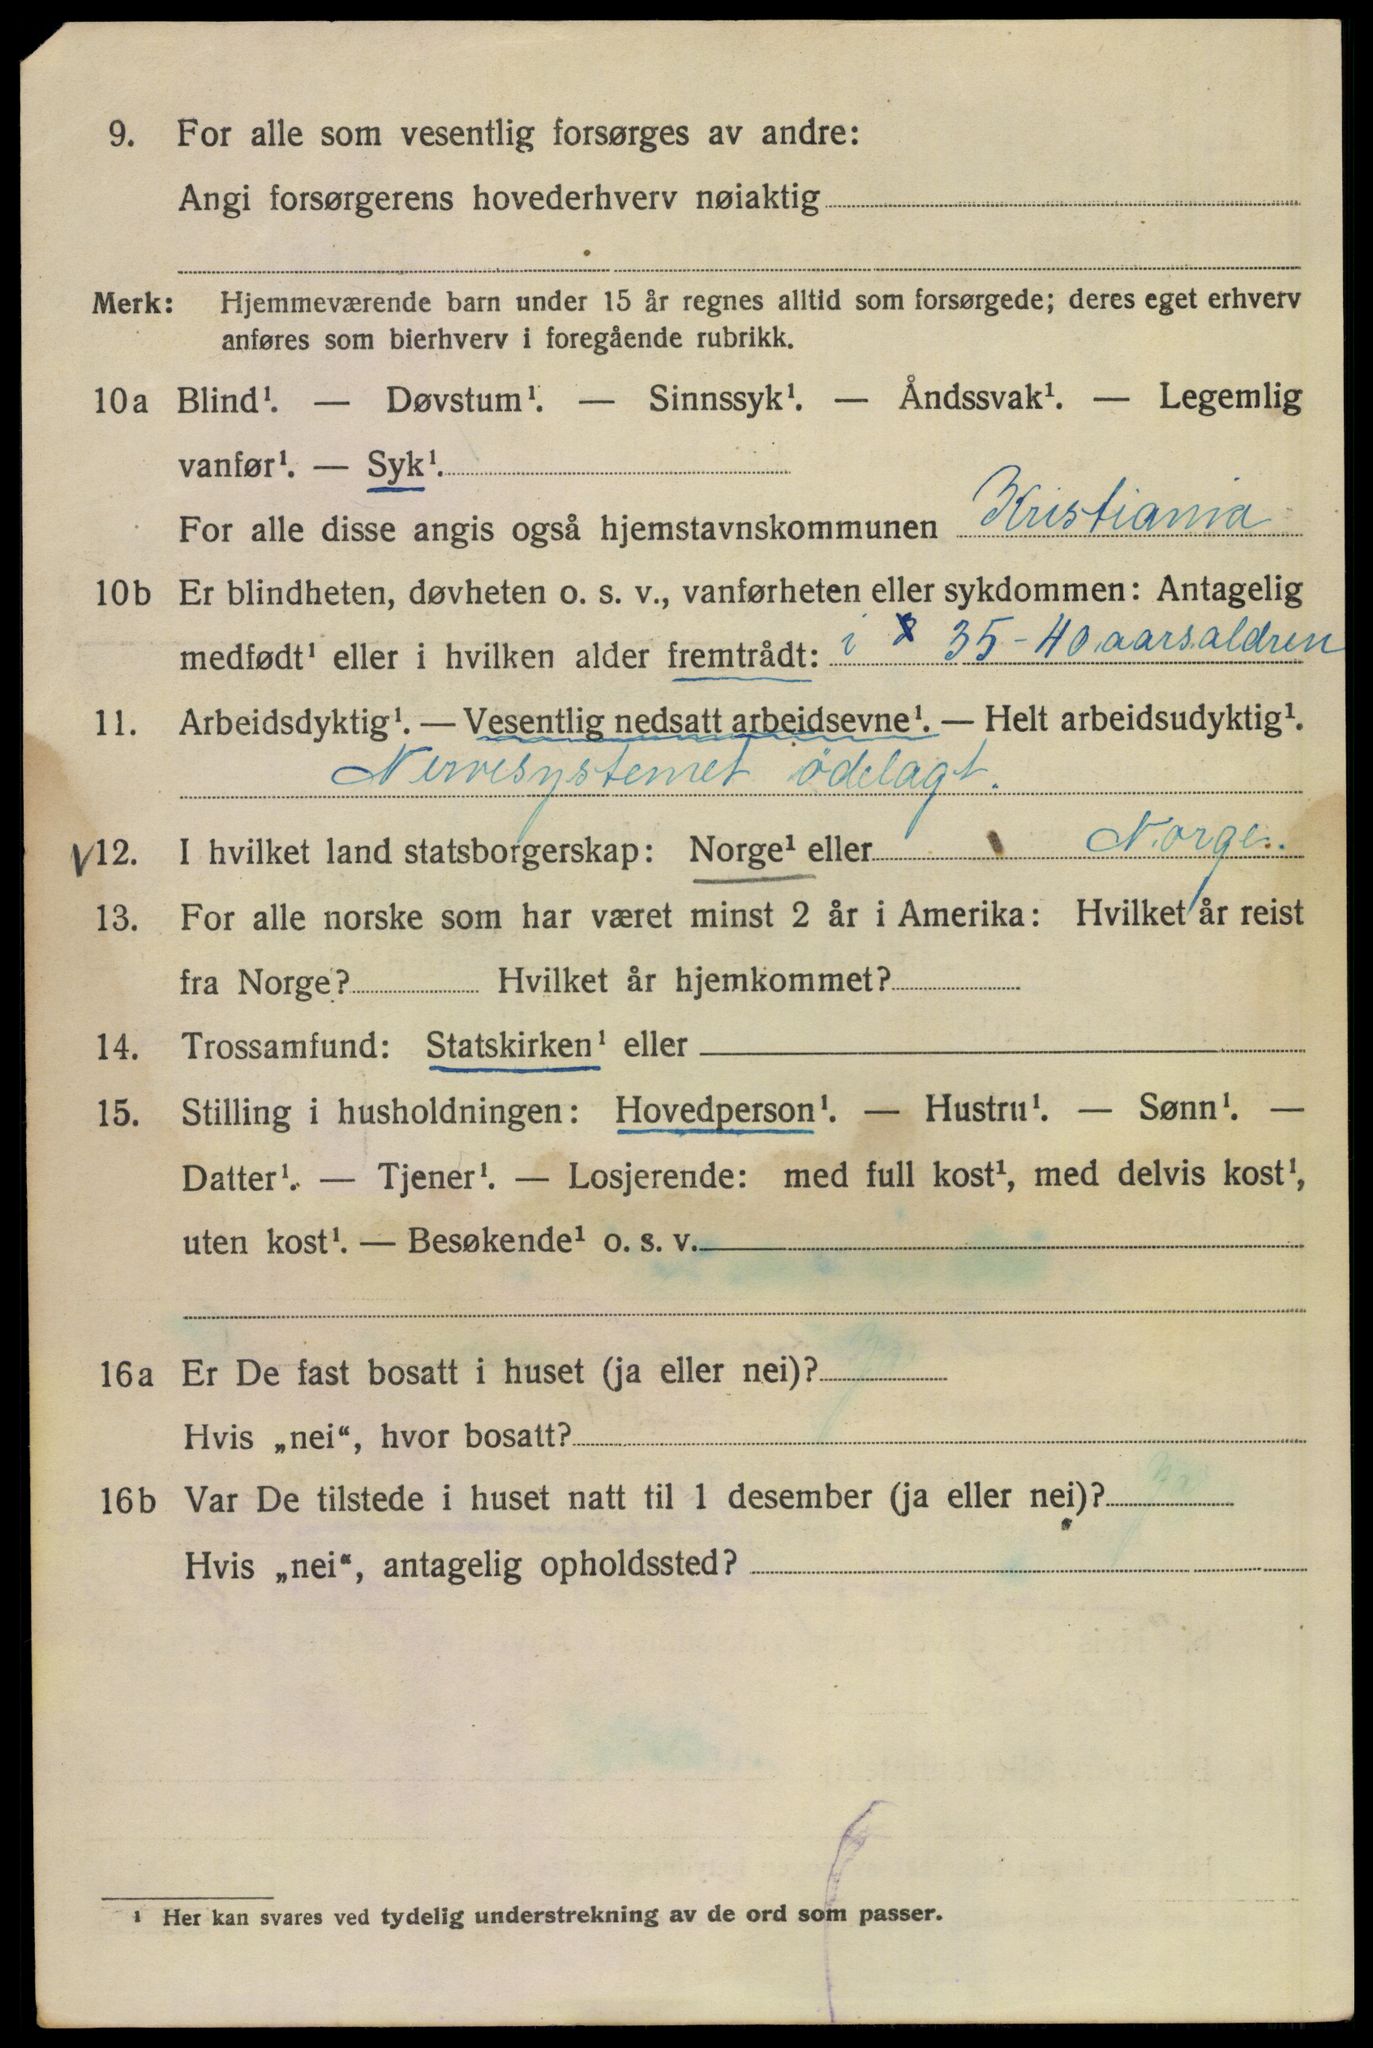 9. For alle som vesentlig forsørges av andre:
Angi forsørgerens hovederhverv nøiaktig
Merk: Hjemmeværende barn under 15 år regnes alltid som forsørgede; deres eget erhverv
anføres som bierhverv i foregående rubrikk.
10a Blind¹. — Døvstum¹. — Sinnssyk¹. — Åndssvak¹. — Legemlig
vanfør¹. — Syk¹.
For alle disse angis også hjemstavnskommunen Kristiania
10b Er blindheten, døvheten o. s. v., vanførheten eller sykdommen: Antagelig
medfødt¹ eller i hvilken alder fremtrådt: i 35-40 aarsaldren
11. Arbeidsdyktig¹. — Vesentlig nedsatt arbeidsevne¹. — Helt arbeidsudyktig¹.
Nervesystemet ödelagt.
V 12. I hvilket land statsborgerskap: Norge¹ eller Norge.
13. For alle norske som har været minst 2 år i Amerika: Hvilket år reist
fra Norge? Hvilket år hjemkommet?
14. Trossamfund: Statskirken¹ eller
15. Stilling i husholdningen: Hovedperson¹. — Hustru¹. — Sønn¹. —
Datter¹. — Tjener¹. — Losjerende: med full kost¹, med delvis kost¹,
uten kost¹. — Besøkende¹ o. s. v.
16a Er De fast bosatt i huset (ja eller nei)? Ja
Hvis „nei“, hvor bosatt?
16b Var De tilstede i huset natt til 1 desember (ja eller nei)? Ja
Hvis „nei“, antagelig opholdssted?
¹ Her kan svares ved tydelig understrekning av de ord som passer.